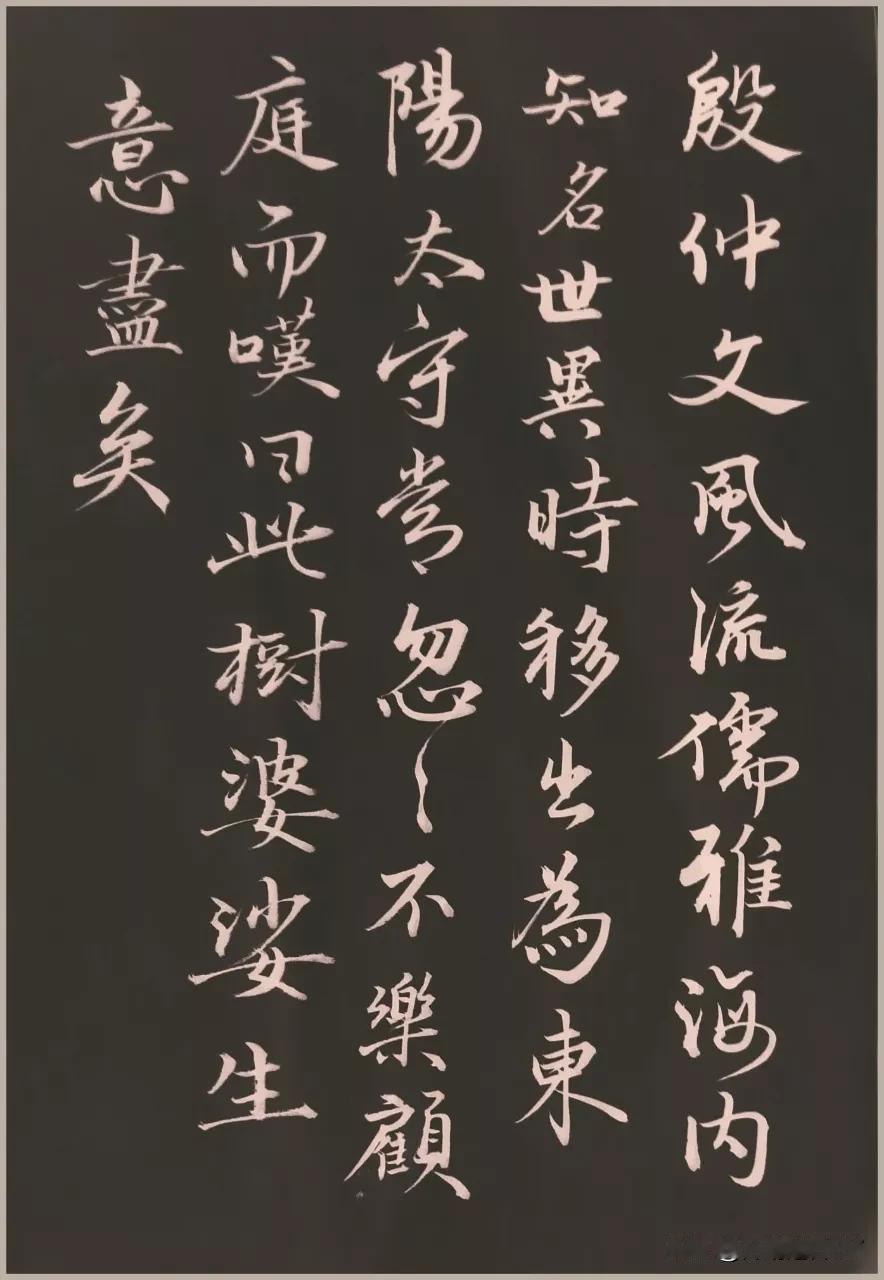 殷仲文風流儒雅海内
知名世異時移出為東
陽太守常忽〻不樂顧
庭而嘆曰此樹婆娑生
意盡矣